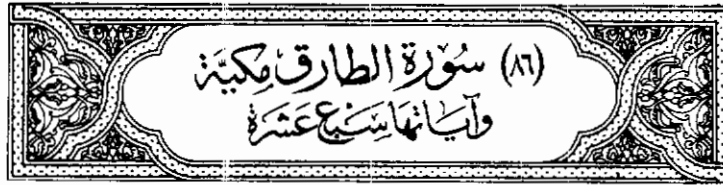 (٨٦) سُورَة الطارق مكيَّة
وآياتها سَبْع عَشرَة